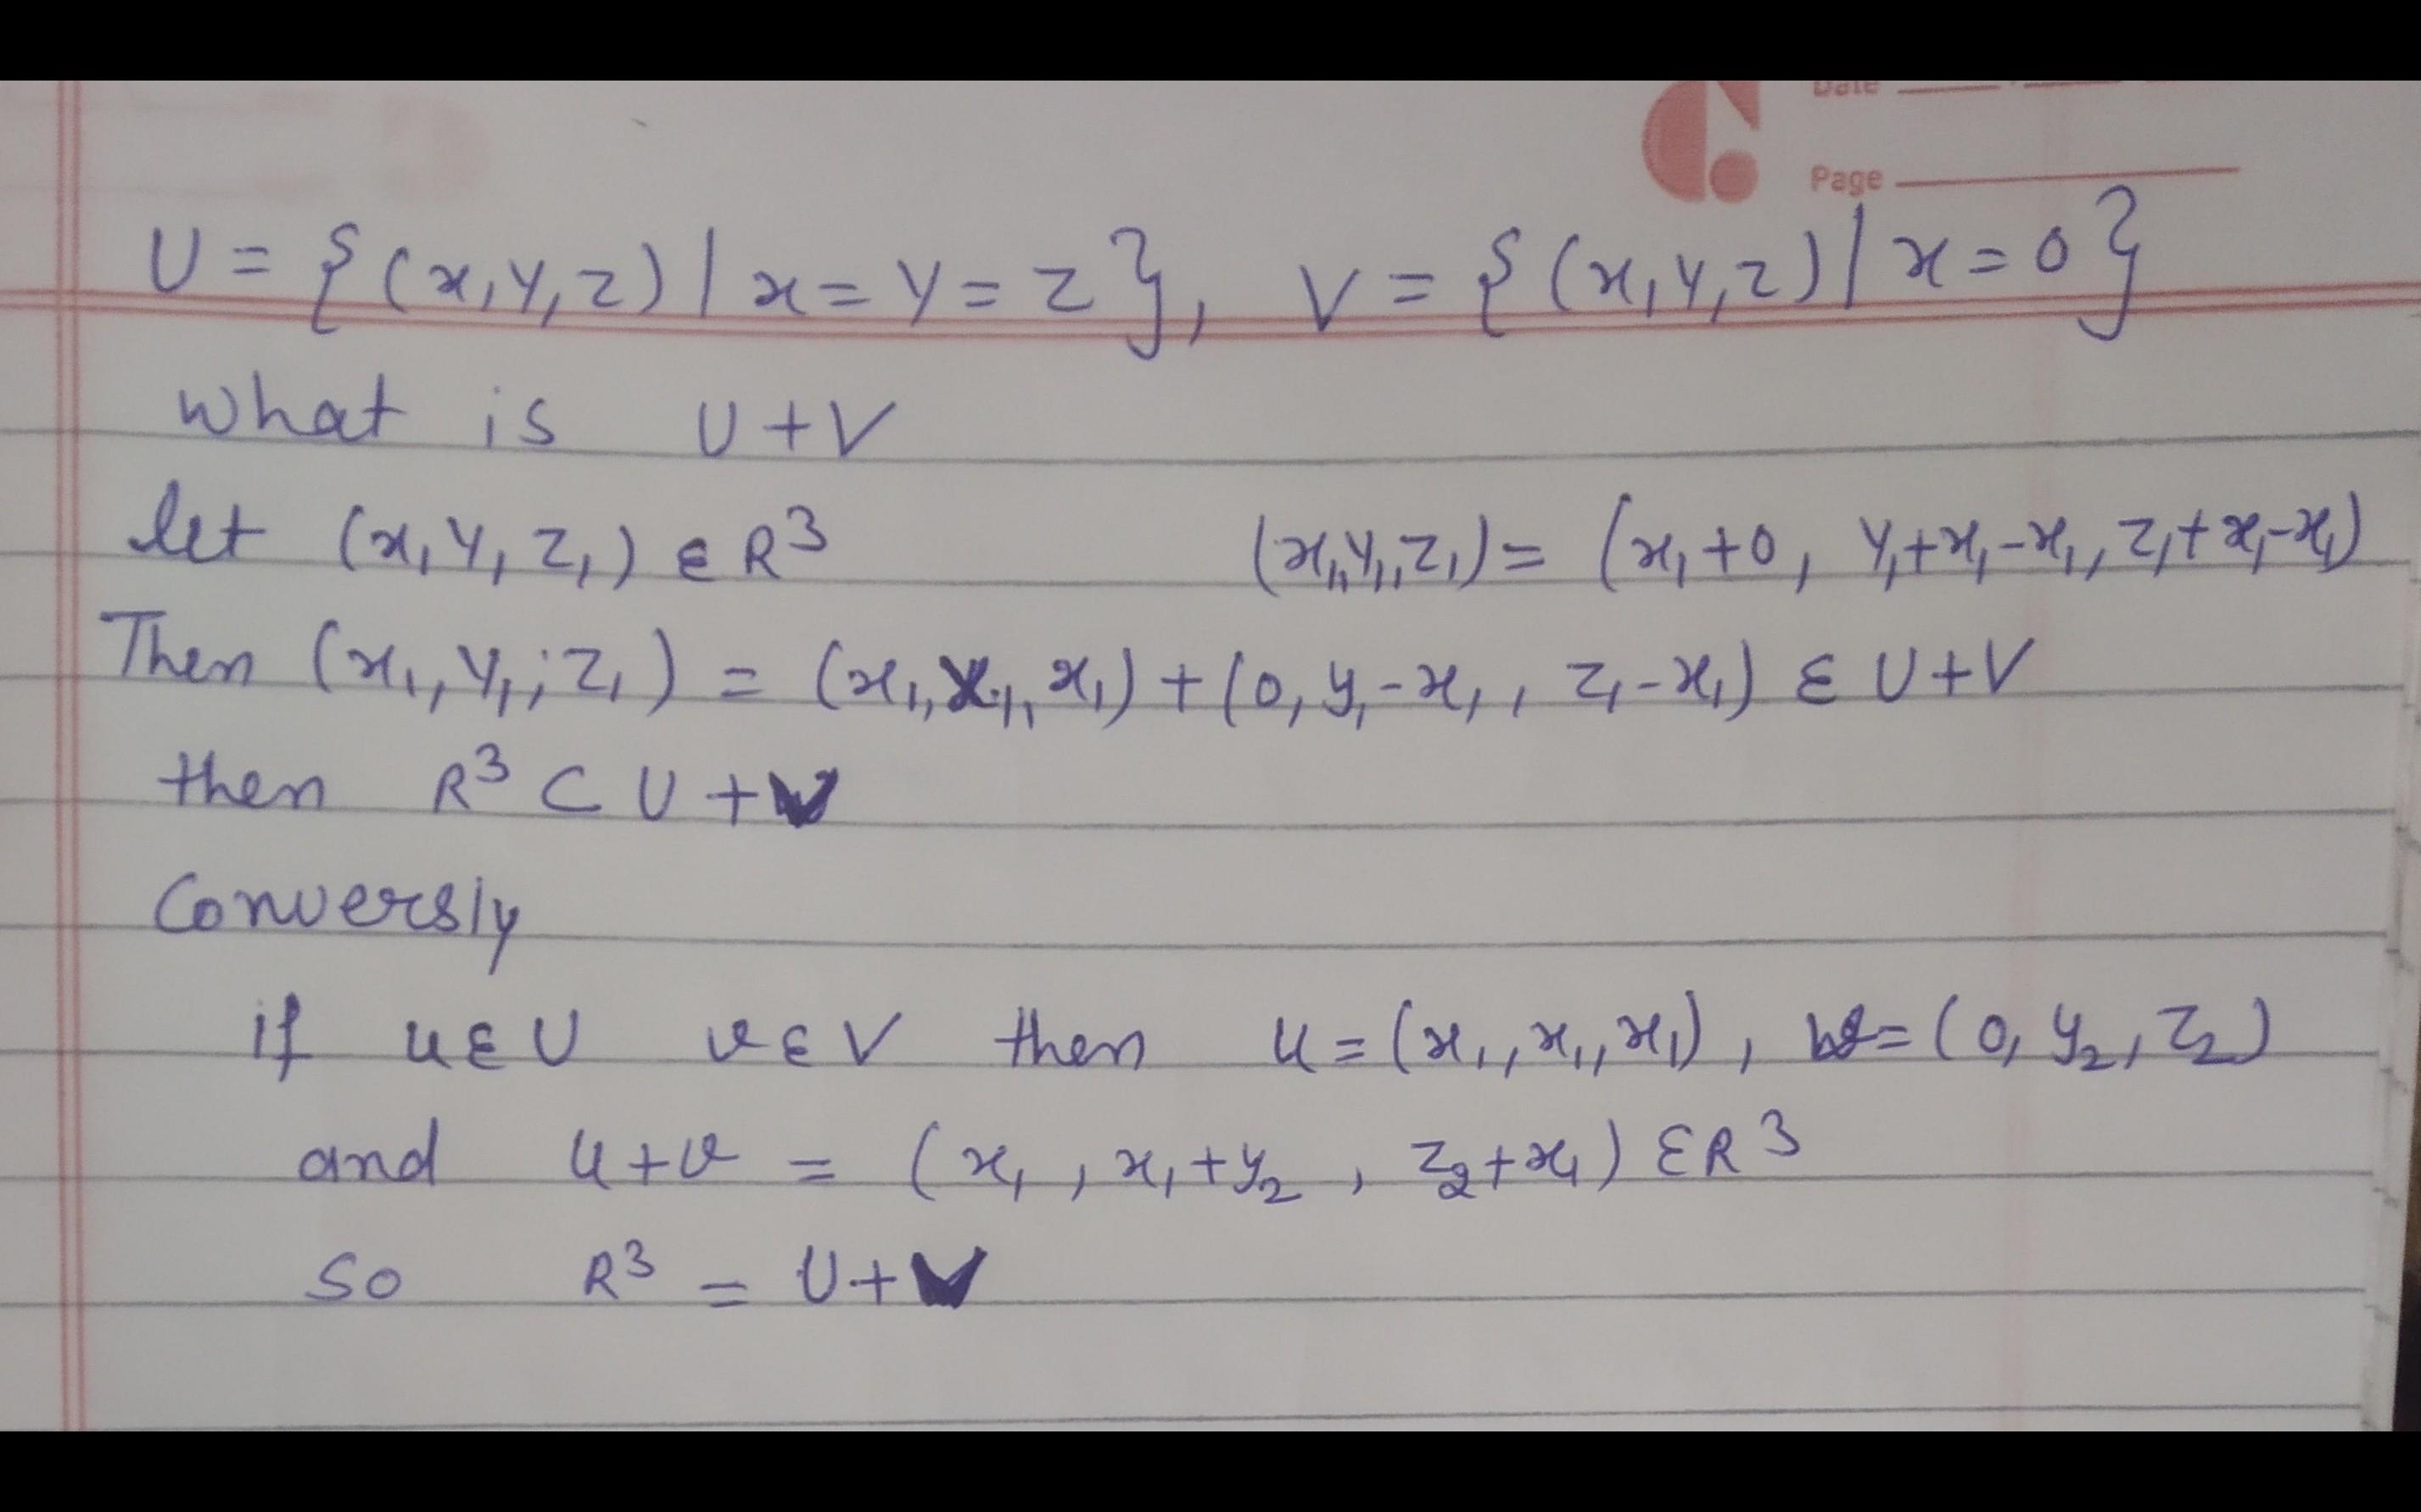 Date
Page
U = {(x,y,z) | x=y=z}, V = {(x,y,z) | x=0}
what is U+V
let (x, y, z₁) ε R³ (x₁,y₁,z₁) = (x₁+0, y₁+x₁-x₁, z₁+x₁-x₁)
Then (x₁, y₁, z₁) = (x₁, x₁, x₁) + (0, y₁-x₁, z₁-x₁) ε U+V
then R³ ⊂ U+V
Conversly
if u ε U v ε V then u = (x₁, x₁, x₁), v = (0, y₂, z₂)
and u+v = (x₁, x₁+y₂, z₂+x₁) ε R³
so R³ = U+V